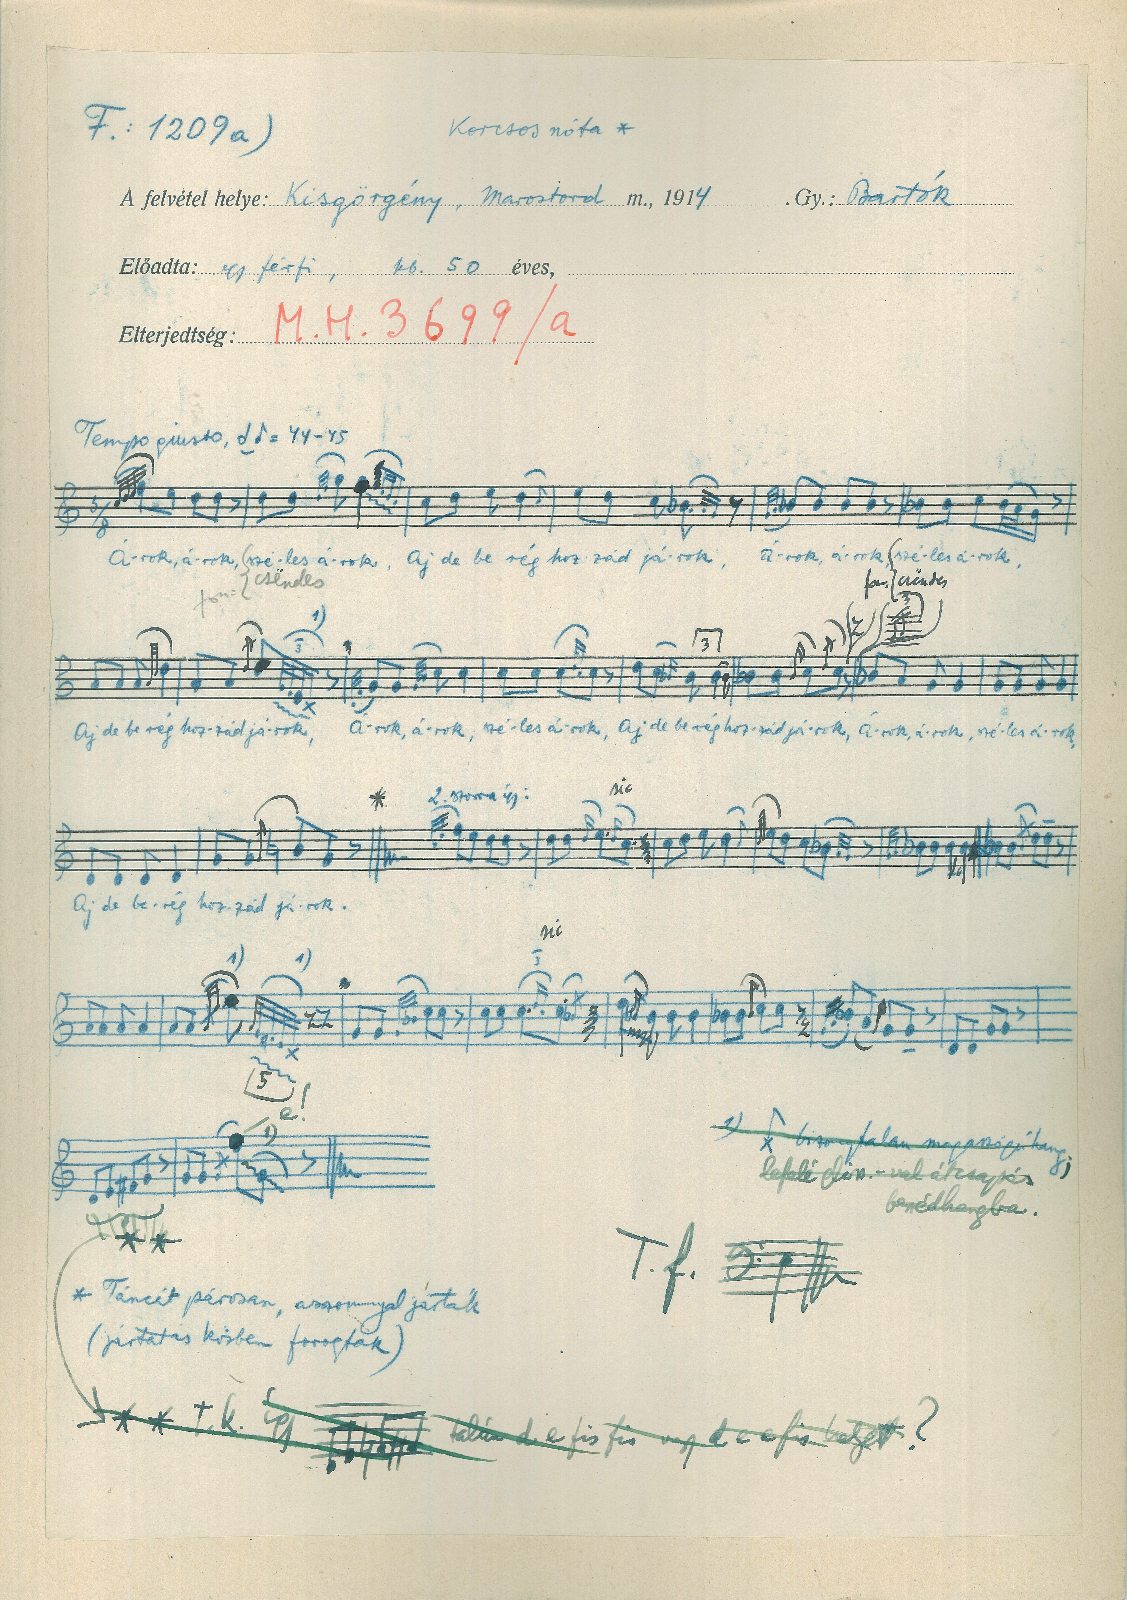 F.: 1209a)
Korcsos nóta *
A felvétel helye: Kisgörgény, Marostord m., 1914 . Gy.: Bartók
Előadta: egy férfi, kb. 50 éves,
Elterjedtség: M.H. 3699/a
Tempo giusto, = 44-45
5/8
Á-rok, á-rok, széles á-rok, Aj de be rég hoz-zád já-rok, Á-rok, á-rok, szé-les á-rok,
fon: csëndes
fon. csëndes
1)
3
3
3
Aj de be rég hoz-zád já-rok, Á-rok, á-rok, szé-les á-rok, Aj de be rég hoz-zád já-rok, Á-rok, á-rok, szé-les á-rok,
* 2. strofa így: sic
Aj de be-rég hoz-zád já-rok.
sic
1) 1) 3
5
e!
1)
1) bizonytalan magasságú hang;
** 
T. f.
* Táncát párosan, asszonnyal járták
(jártatás közben forogtak)
** T.k. így talán d e fis fis vagy d e e fis helyett?